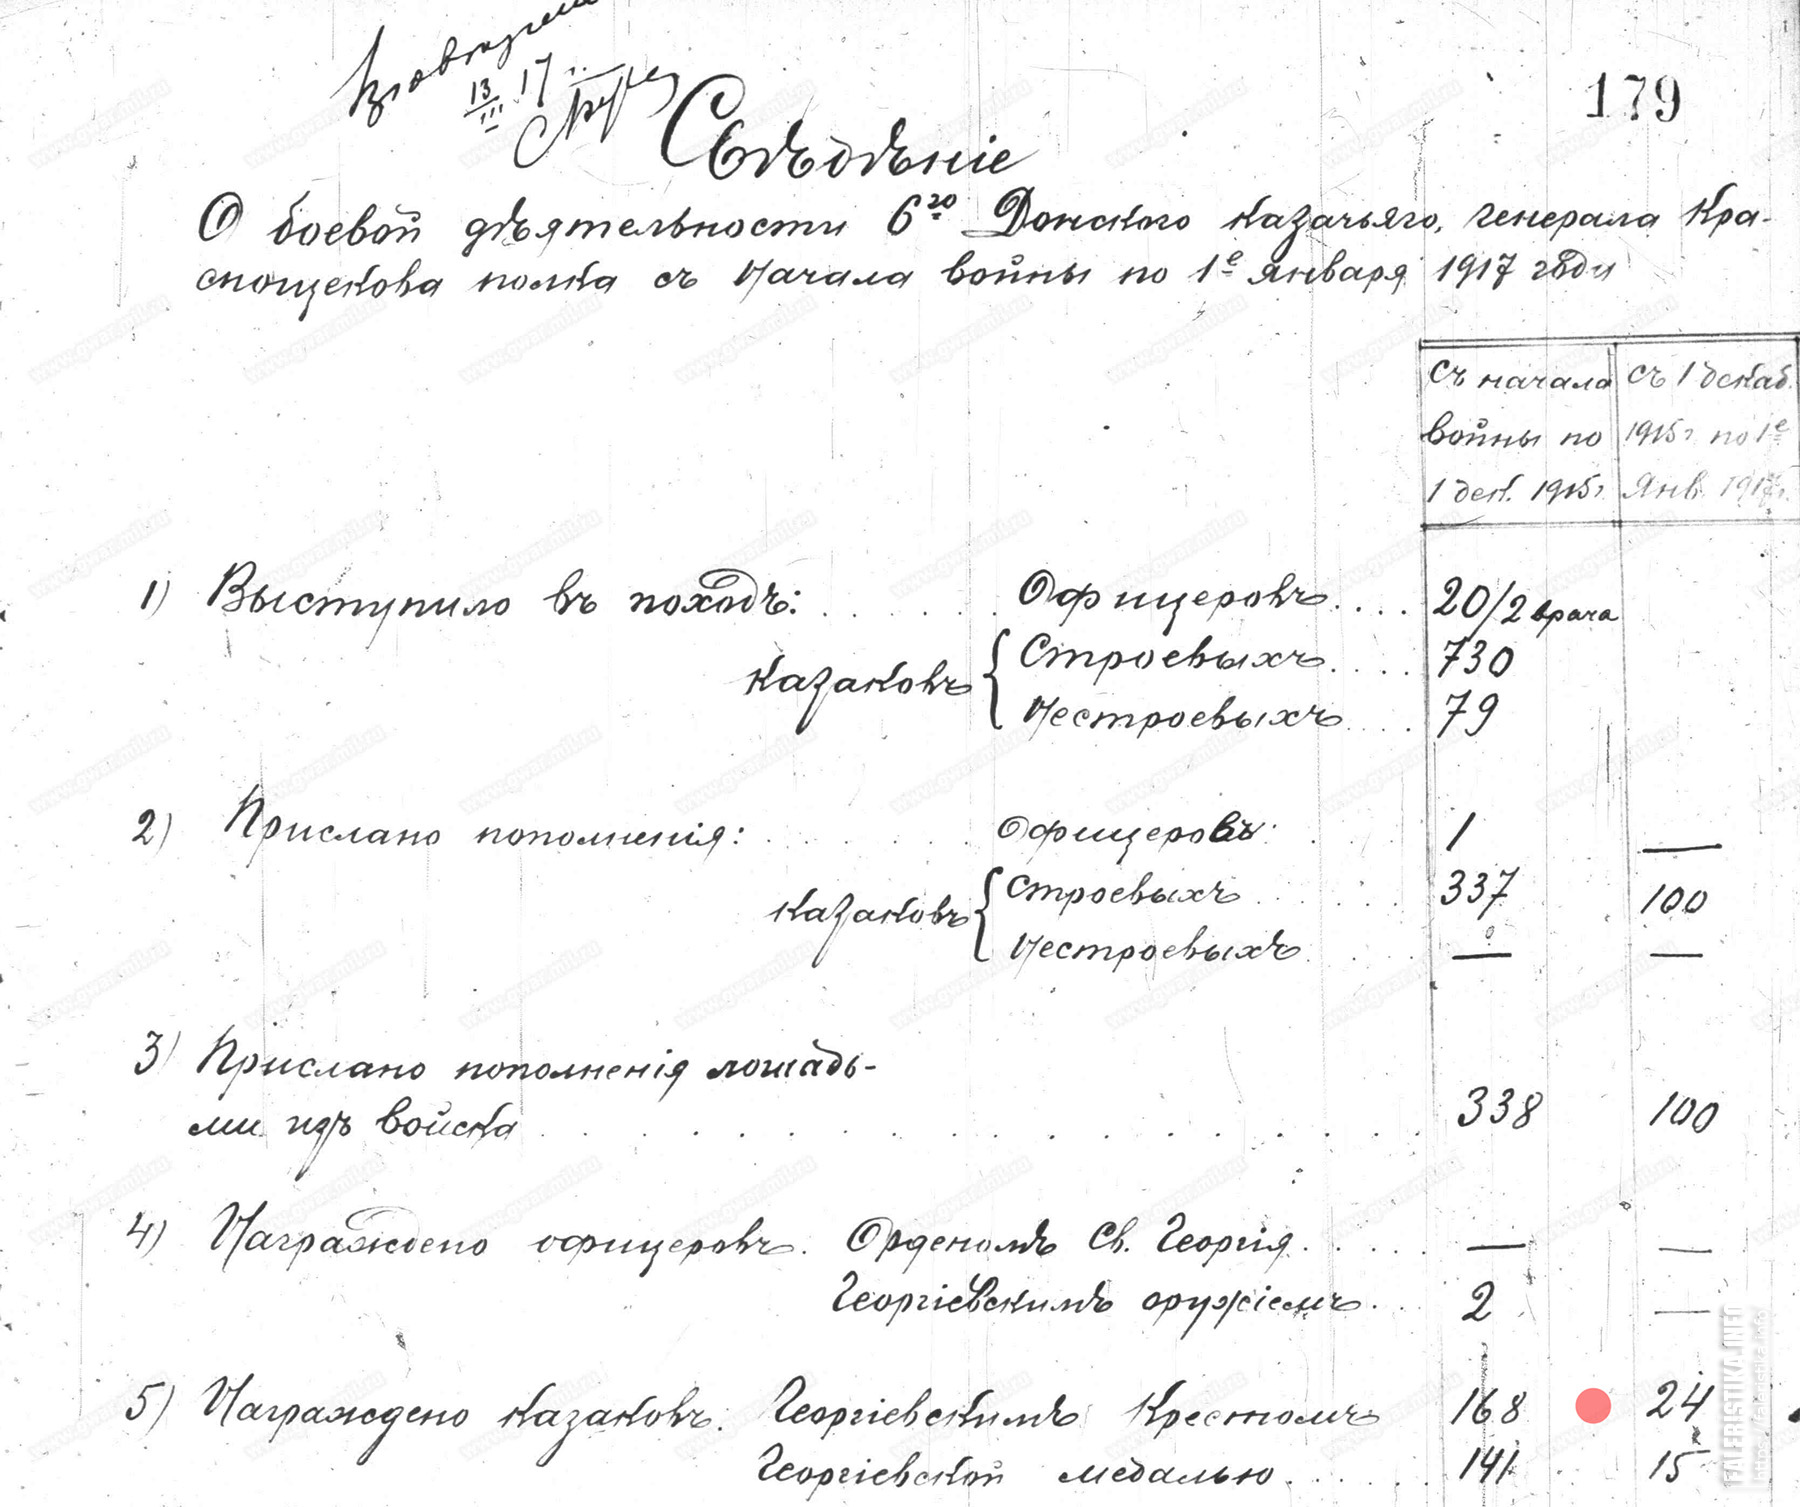 179
13/III 17 г.
Свѣдѣніе
О боевой дѣятельности 6го Донского казачьяго, генерала Кра-
снощекова полка съ начала войны по 1е января 1917 года
съ начала войны по 1 дек. 1915 г. съ 1 декаб. 1915 г. по 1е Янв. 1917 г.
1) Выступило въ походъ: Офицеровъ 20/2 врача
казаковъ { Строевыхъ 730
Нестроевыхъ 79
2) Прислано пополненія: Офицеровъ: 1 —
казаковъ { Строевыхъ 337 100
Нестроевыхъ — —
3) Прислано пополненія лошадь-
ми изъ войска 338 100
4) Награждено офицеровъ. Орденомъ Св. Георгія — —
Георгіевскимъ оружіемъ 2 —
5) Награждено казаковъ. Георгіевскимъ Крестомъ 168 24
Георгіевской медалью 141 15
FALERISTIKA.INFO